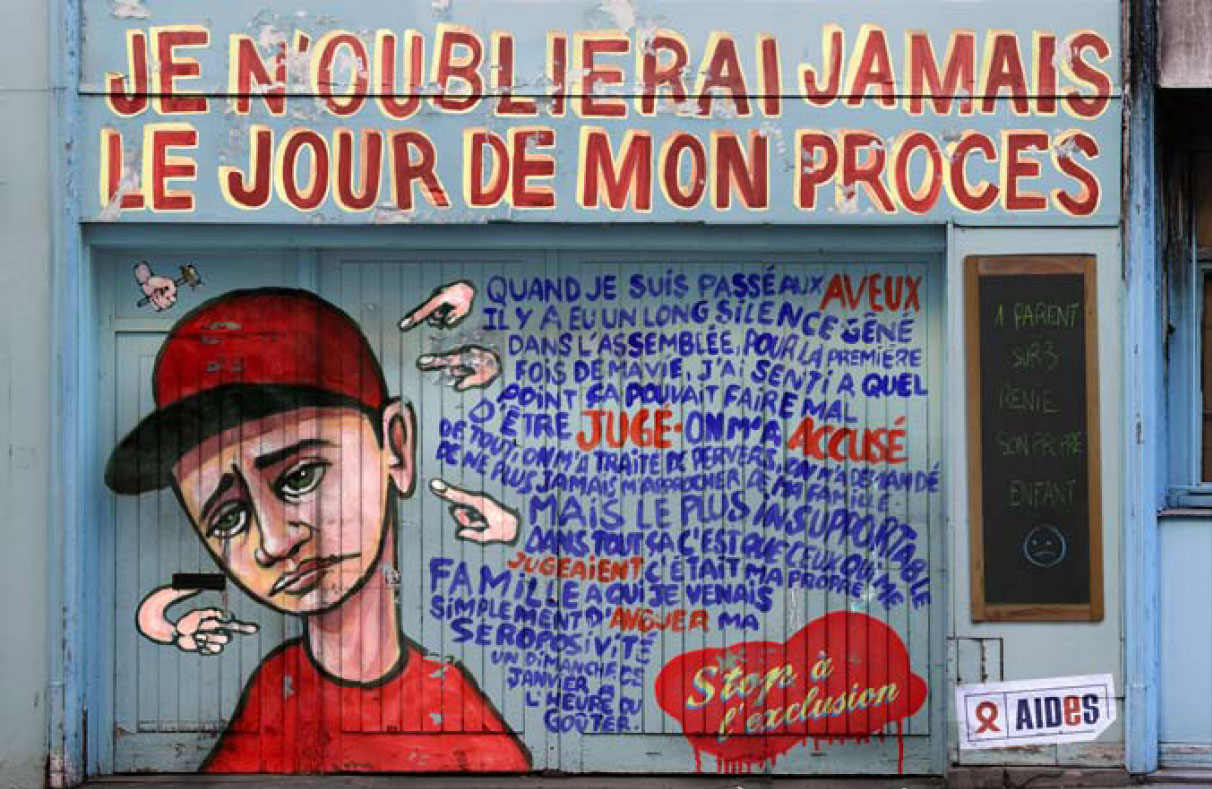 JE N'OUBLIERAI JAMAIS
LE JOUR DE MON PROCES
QUAND JE SUIS PASSÉ AUX AVEUX
IL Y A EU UN LONG SILENCE GÊNÉ
DANS L'ASSEMBLÉE, POUR LA PREMIÈRE
FOIS DE MA VIE, J'AI SENTI A QUEL
POINT ÇA POUVAIT FAIRE MAL
D'ÊTRE JUGÉ. ON M'A ACCUSÉ
DE TOUT, ON M'A TRAITÉ DE PERVERS, ON M'A DEMANDÉ
DE NE PLUS JAMAIS M'APPROCHER DE MA FAMILLE
MAIS LE PLUS INSUPPORTABLE
DANS TOUT ÇA C'EST QUE CEUX QUI ME
JUGEAIENT C'ÉTAIT MA PROPRE
FAMILLE A QUI JE VENAIS
SIMPLEMENT D'AVOUER MA
SEROPOSIVITÉ
UN DIMANCHE DE
JANVIER A
L'HEURE DU
GOÛTER.
Stop à
l'exclusion
1 PARENT
SUR 3
RENIE
SON PROPRE
ENFANT
AIDes